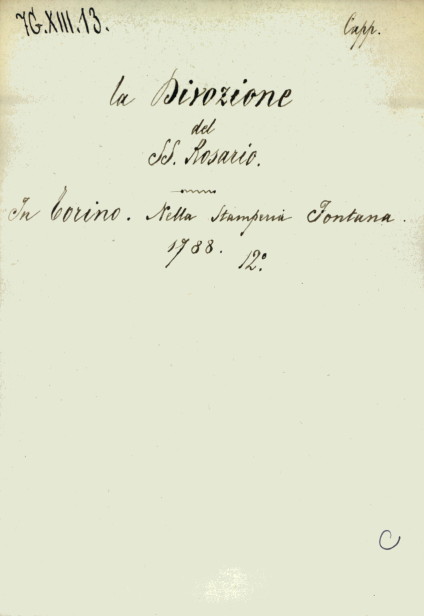 7G.XIII.13.
Capp.
la Divozione
del
SS. Rosario.
In Torino. Nella Stamperia Fontana.
1788. 12°.
C